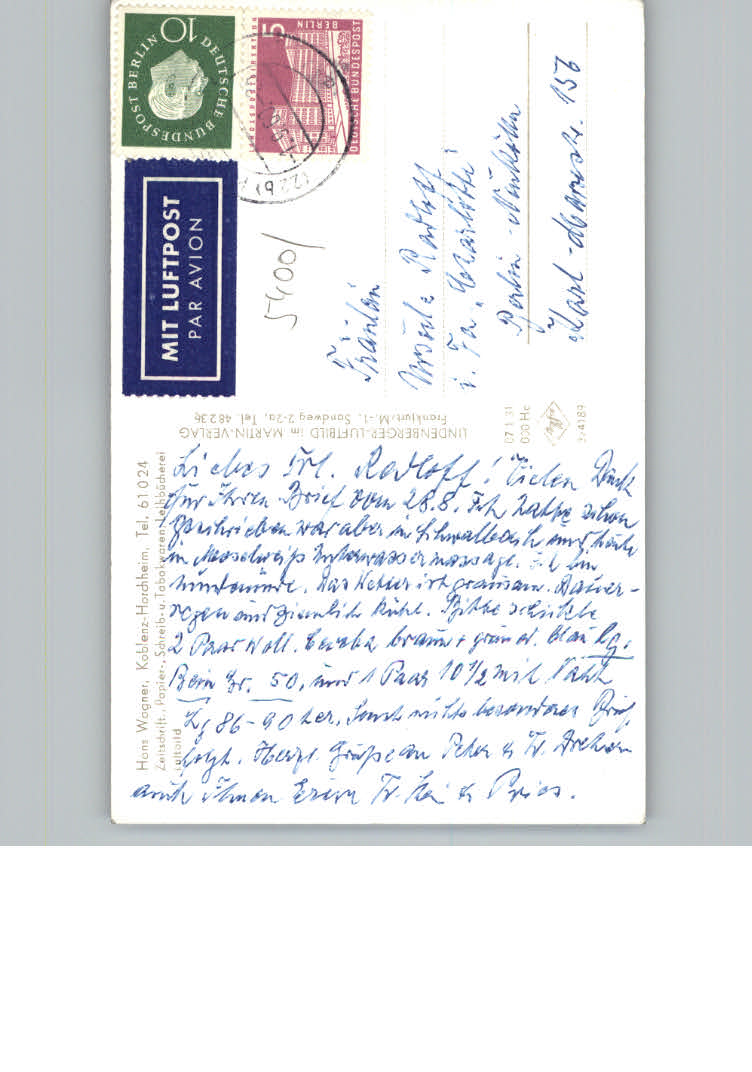 10
DEUTSCHE BUNDESPOST BERLIN
5
BERLIN
DEUTSCHE BUNDESPOST
(22b)
MIT LUFTPOST
PAR AVION
5400/
Fräulein
Radloff
i. Fa. „Charlotte"
Berlin-Neukölln
Karl-Marxstr. 156
LINDENBERGER-LUFTBILD im MARTIN-VERLAG
Frankfurt/M.-1. Sandweg 2-2a, Tel. 48236
07 1 31
000 He
Hans Wagner, Koblenz-Horchheim, Tel. 61024
Zeitschrift., Papier-, Schreib- u. Tabakwaren, Leihbücherei
Luftbild
Liebes Frl. Radloff! Vielen Dank
für Ihren Brief vom 28.8. Ich hatte schon
geschrieben war aber in Schwalbach und heute
in Unterwassermassage.
Das Wetter ist grausam. Dauer-
regen und ziemlich kühl. Bitte schicken
2 Paar woll. braun + grün
Bein Gr. 50, und 1 Paar 10½ mit Naht
Lg 86-90 ter. Sonst nichts besonderes Brief
folgt. Herzl. Grüße an Peter & Fr.
auch Ihnen Fr. &